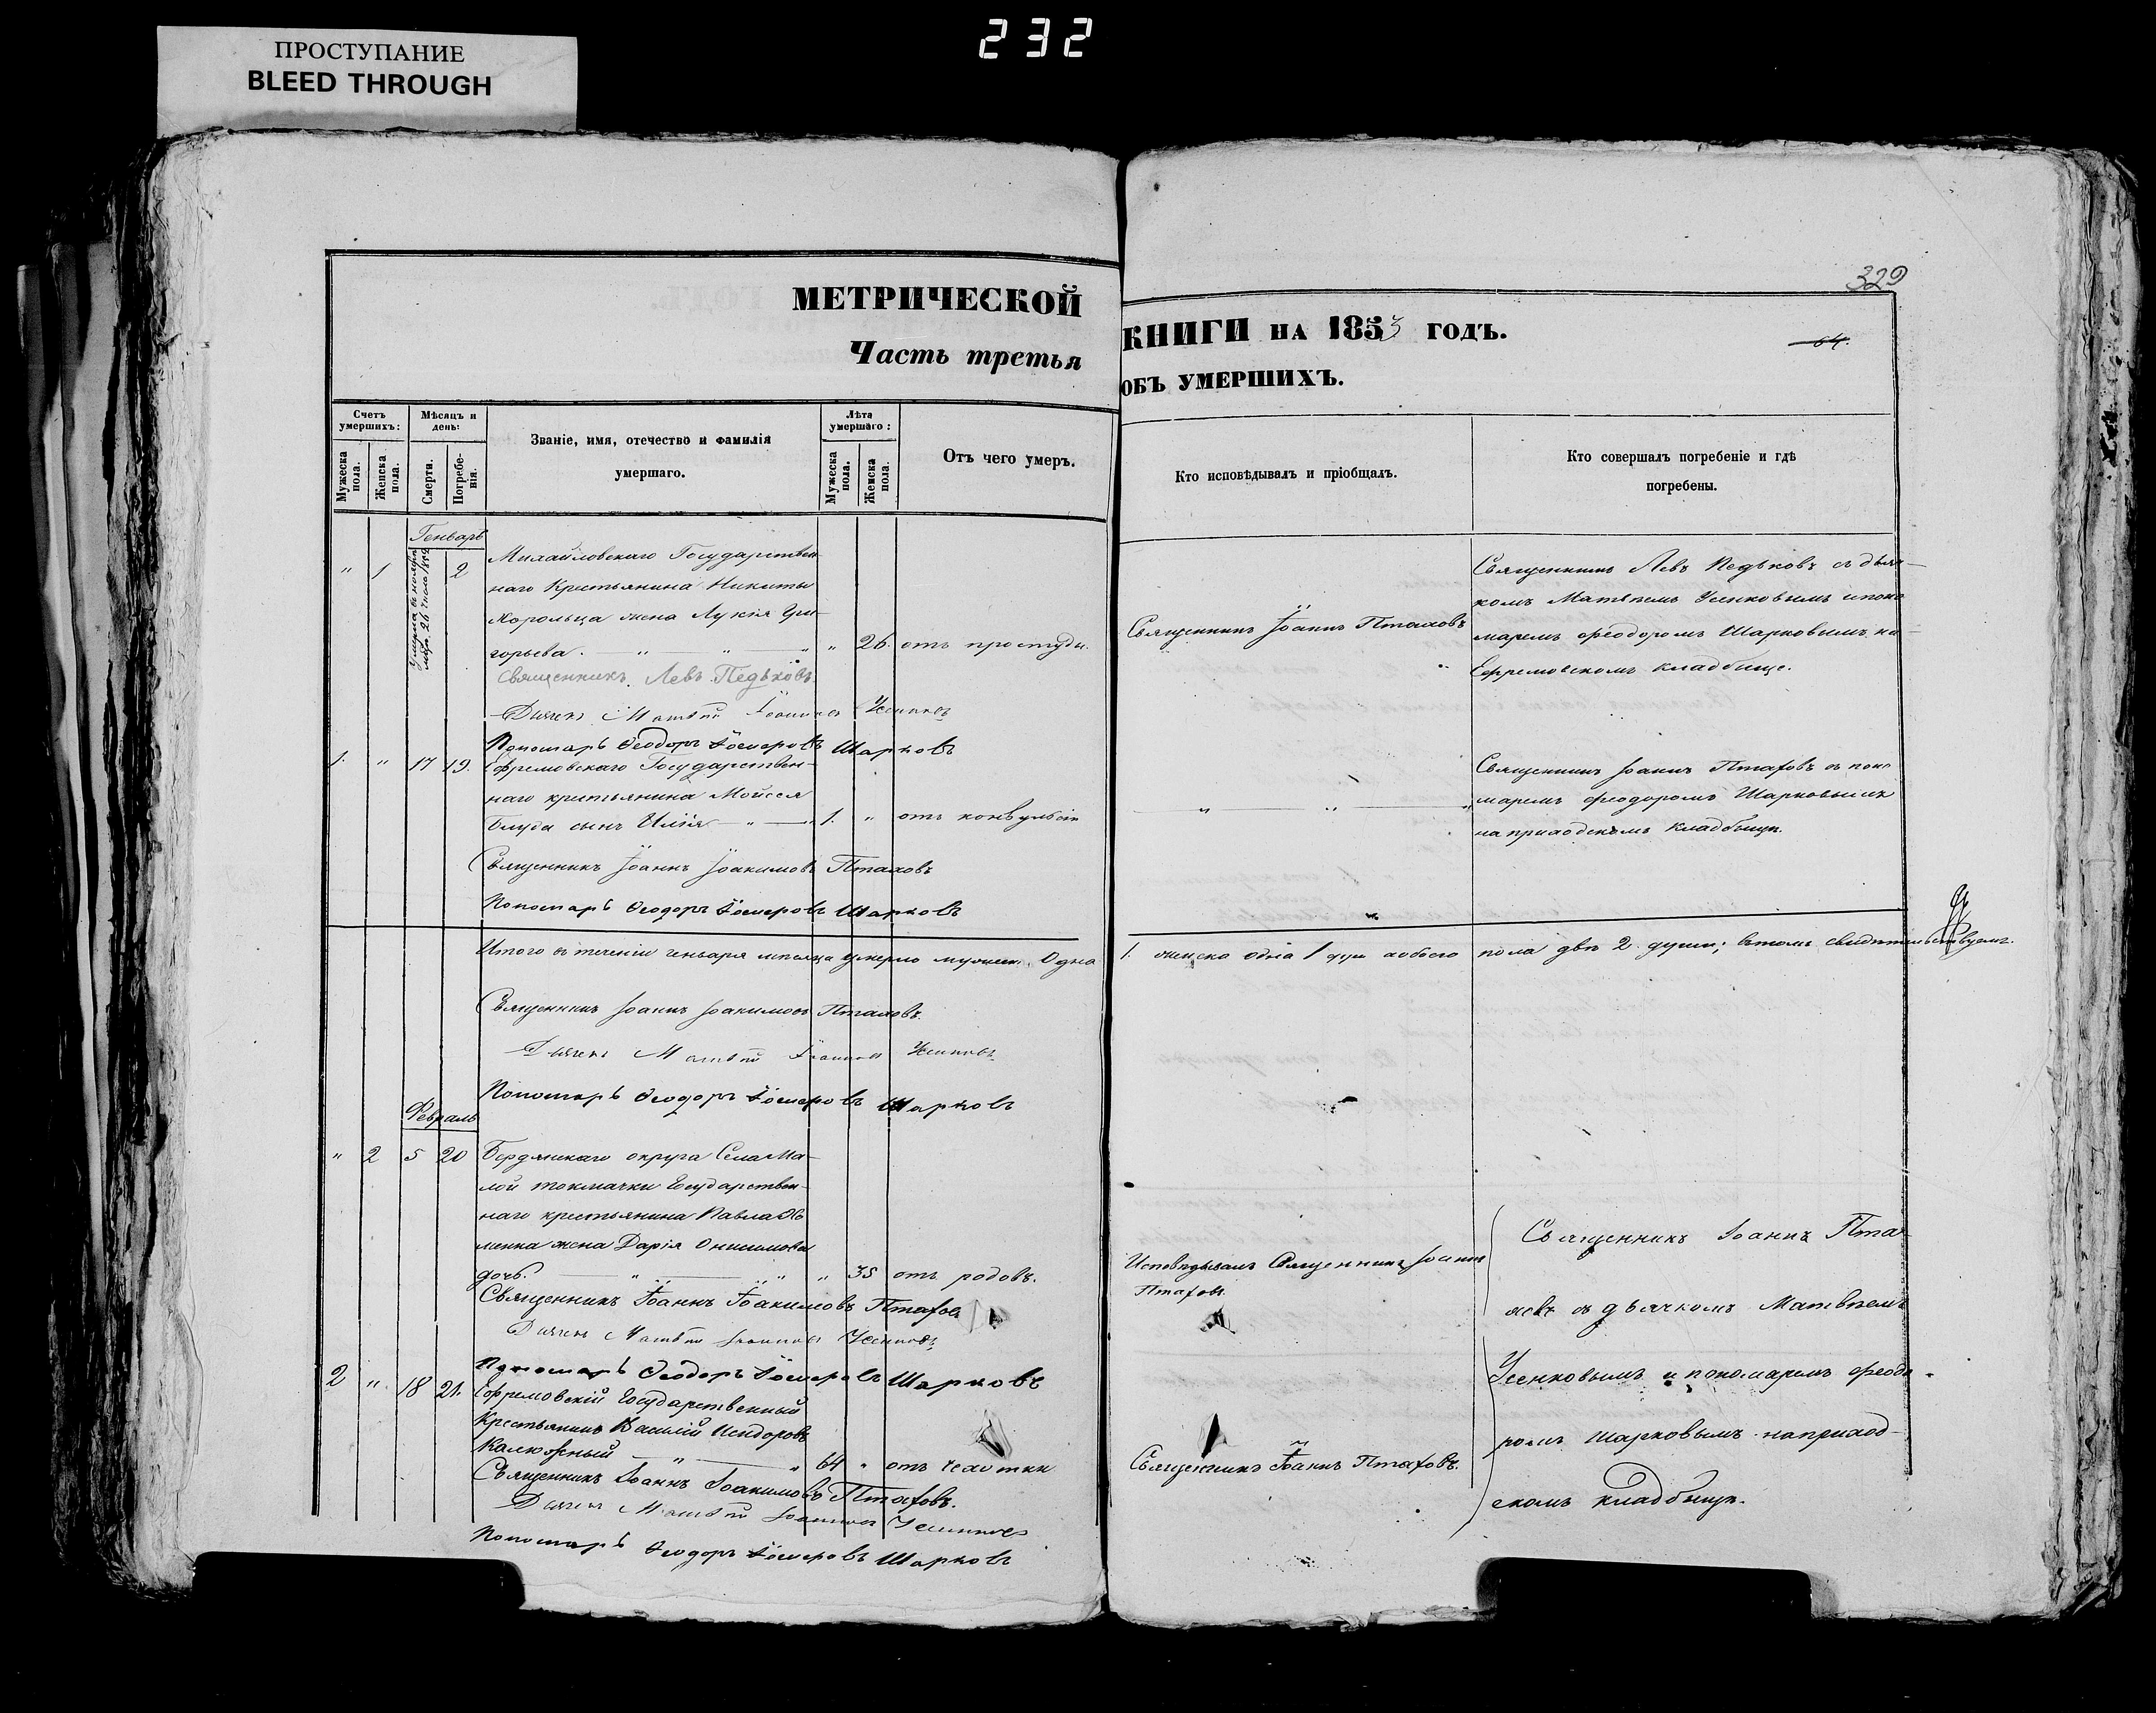 ПРОСТУПАНИЕ
BLEED THROUGH
232
329
МЕТРИЧЕСКОЙ
КНИГИ НА 1853 ГОДЪ.
64.
Часть третья
ОБЪ УМЕРШИХЪ.
Счетъ умершихъ:
Мужеска пола.
Женска пола.
Мѣсяцъ и день:
Смерти.
Погребенія.
Званіе, имя, отечество и фамилія
умершаго.
Лѣта умершаго:
Мужеска пола.
Женска пола.
Отъ чего умеръ.
Кто исповѣдывалъ и пріобщалъ.
Кто совершалъ погребеніе и гдѣ
погребены.
Генварь
" 1 2 Михайловскаго Государствен-
наго Крестьянина Никиты
Хорольца жена Лукія Гри-
горьева " " " " 26. отъ простуды.
Священникъ Іоаннъ Птаховъ
Священникъ Левъ Педьковъ съ дьяч-
комъ Матвѣемъ Усенковымъ и поно
маремъ Феодоромъ Шарковымъ на
Ефремовскомъ кладбище.
Священникъ Левъ Педьковъ
Дьячекъ Матвѣй Іоанновъ Усенковъ
Пономарь Феодоръ Шарковъ
1. " 17 19. Ефремовскаго Государствен-
наго крестьянина Мойсея
сынъ Илія " " 1. " отъ конвульсіи
Священникъ Іоаннъ Птаховъ съ поно
маремъ Феодоромъ Шарковымъ
на приходскомъ кладбищѣ.
Священникъ Іоаннъ Іоакимовъ Птаховъ
Пономарь Феодоръ Шарковъ
Итого въ теченіи генваря мѣсяца умерло мужеск. Одна
1. женска одна 1 душ а обоего пола двѣ 2 души; въ томъ свидѣтельствуемъ.
Священникъ Іоаннъ Іоакимовъ Птаховъ.
Дьячекъ Матвѣй Іоанновъ Усенковъ
Пономарь Феодоръ Шарковъ
Февраль
" 2 5 20 Бердянскаго округа Села Ма-
лой токмачки Государствен-
наго крестьянина Павла
жена Дарія Онисимова
дочь. " " " " 35 отъ родовъ.
Исповѣдывалъ Священникъ Іоаннъ
Птаховъ.
Священникъ Іоаннъ Пта-
ховъ съ дьячкомъ Матвѣемъ
Усенковымъ и пономаремъ Феодо-
ромъ Шарковымъ на приход-
скомъ кладбищѣ.
Священникъ Іоаннъ Іоакимовъ Птаховъ
Дьячекъ Матвѣй Іоанновъ Усенковъ
Пономарь Феодоръ Шарковъ
2 " 18 21. Ефремовскій Государственный
Крестьянинъ Василій Исидоровъ
Калюжный " " 64 " отъ чахотки
Священникъ Іоаннъ Птаховъ.
Священникъ Іоаннъ Іоакимовъ Птаховъ.
Дьячекъ Матвѣй Іоанновъ Усенковъ
Пономарь Феодоръ Шарковъ